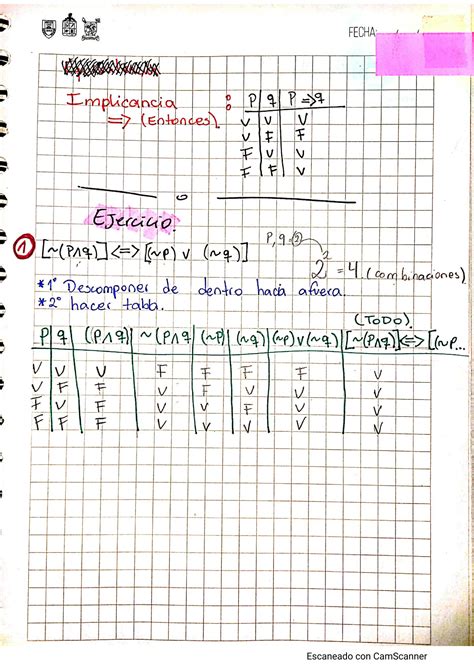 FECHA:
Implicancia : P | q | P => q
=> (Entonces) V V V
V F F
F V V
F F V
Ejercicio.
① [~(P∧q)] <=> [(~p) v (~q)] P, q = 2
2² = 4 (combinaciones)
*1° Descomponer de dentro hacia afuera.
*2° hacer tabla.
(TODO).
P | q | (P∧q) | ~(P∧q) | (~p) | (~q) | (~p) v (~q) | [~(P∧q)] <=> [(~P...
V V V F F F F V
V F F V F V V V
F V F V V F V V
F F F V V V V V
Escaneado con CamScanner